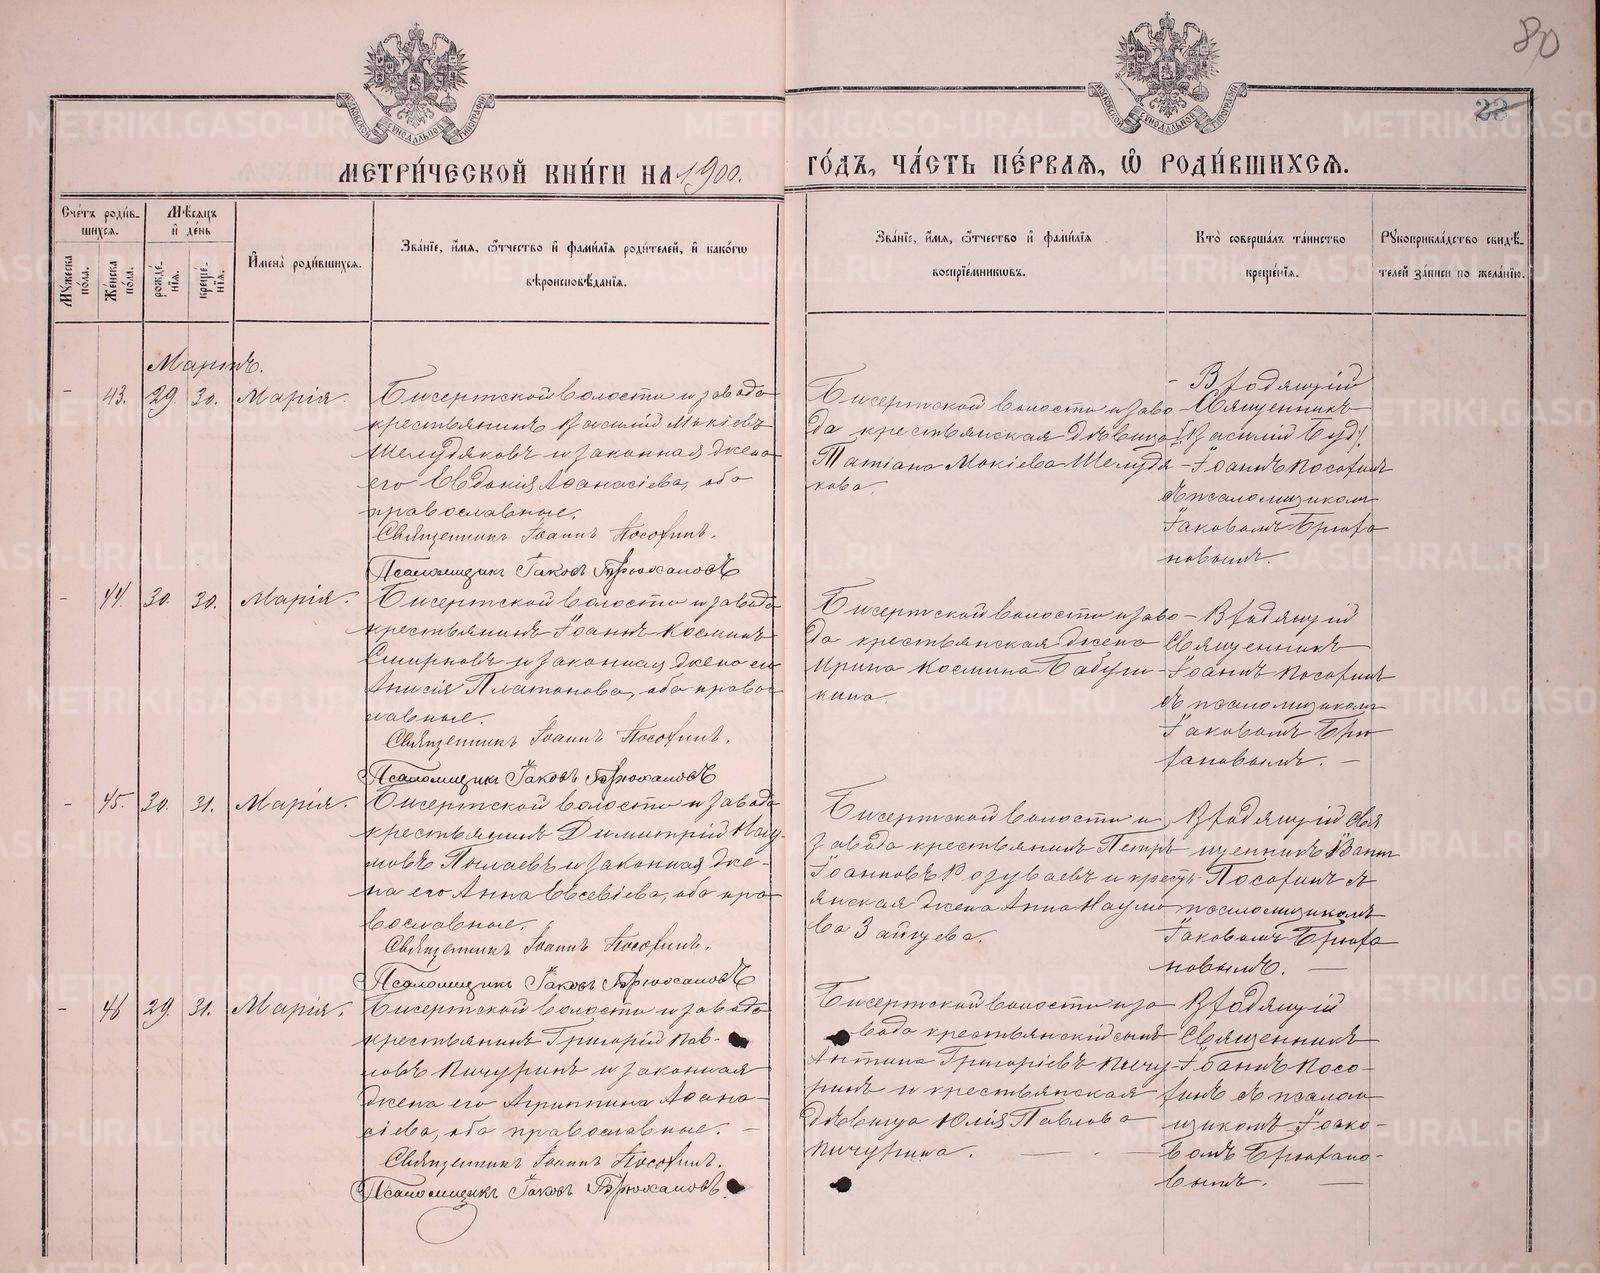 80
23
МЕТРИ́ЧЕСКОЙ КНИ́ГИ НА 1900.
ГО́ДЪ, ЧА́СТЬ ПЕ́РВАѦ, Ѽ РОДИ́ВШИХСѦ.
Сче́тъ роди́в-
шихсѧ.
Мꙋжеска по́ла.
Женска по́ла.
Мѣ́сѧцъ
и҆ де́нь
рожде́-
нїѧ.
креще́-
нїѧ.
И҆мена̀ роди́вшихсѧ.
Зва́нїе, и҆́мѧ, ѻ҆́тчество и҆ фами́лїѧ роди́телей, и҆ како́гѡ
вѣроисповѣ́данїѧ.
Зва́нїе, и҆́мѧ, ѻ҆́тчество и҆ фами́лїѧ
воспрїе́мникѡвъ.
Кто̀ соверша́лъ та́инство
креще́нїѧ.
Рꙋкоприкла́дство свидѣ́-
телей за́писи по жела́нїю.
Мартъ.
- 43. 29 30. Марія.
Бисертской волости и завода
крестьянинъ Василій Мокіевъ
Шелудяковъ и законная жена
его Евдокія Аѳанасіева, оба
православные.
Священникъ Іоаннъ Посохинъ.
Псаломщикъ Іаковъ Брюхановъ
Бисертской волости и заво-
да крестьянская дѣвица
Татіана Мокіева Шелудя-
кова.
- В(ходящій
Священникъ
Іоаннъ Посохинъ
съ псаломщикомъ
Іаковомъ Брюха-
новымъ.
- 44. 30. 30. Марія.
Бисертской волости и завода
крестьянинъ Іоаннъ Косминъ
Смирновъ и законная жена его
Анисія Платонова, оба правос-
лавные.
Священникъ Іоаннъ Посохинъ.
Псаломщикъ Іаковъ Брюхановъ
Бисертской волости и заво-
да крестьянская жена
Ирина Космина Бабуш-
кина.
Священникъ
Іоаннъ Посохинъ
съ псаломщикомъ
Іаковомъ Брю-
хановымъ. -
- 45. 30. 31. Марія.
Бисертской волости и завода
крестьянинъ Димитрій Нау-
мовъ Пылаевъ и законная же-
на его Анна Евсевіева, оба пра-
вославные.
Священникъ Іоаннъ Посохинъ.
Псаломщикъ Іаковъ Брюхановъ
Бисертской волости и
завода крестьянинъ Петръ
Іоанновъ Розуваевъ и кресть-
янская жена Анна Наумо-
ва Зайцева.
Свя-
щенникъ Іоаннъ
Посохинъ съ
псаломщикомъ
Іаковомъ Брюха-
новымъ. -
- 46 29. 31. Марія.
Бисертской волости и завода
крестьянинъ Григорій Пав-
ловъ Пичугинъ и законная
жена его Агриппина Аѳана-
сіева, оба православные. -
Священникъ Іоаннъ Посохинъ.
Псаломщикъ Іаковъ Брюхановъ.
Бисертской волости и за-
вода крестьянскій сынъ
Антипа Григоріевъ Пичу-
гинъ и крестьянская
дѣвица Юлія Павлова
Пичугина. -
Священникъ
Іоаннъ Посо-
хинъ съ псалом-
щикомъ Іако-
вомъ Брюхано-
вымъ. -
METRIKI.GASO-URAL.RU